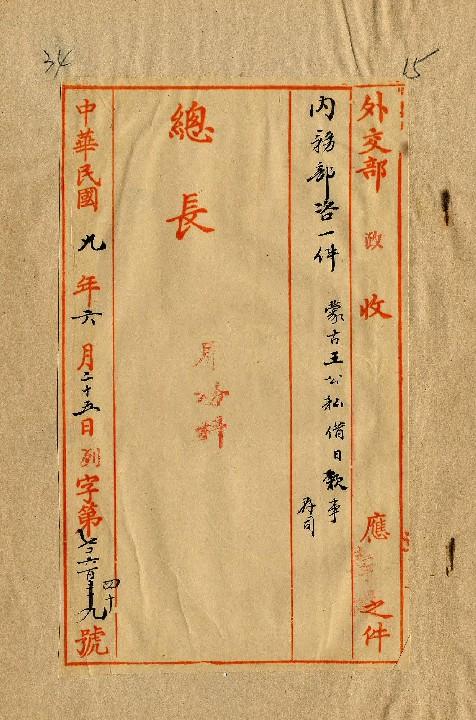 34
15
外交部 政 收 應 之件
內務部咨一件 蒙古王公私借日款事
存司
總長
中華民國九年六月二十五日列字第 六百 四十九號